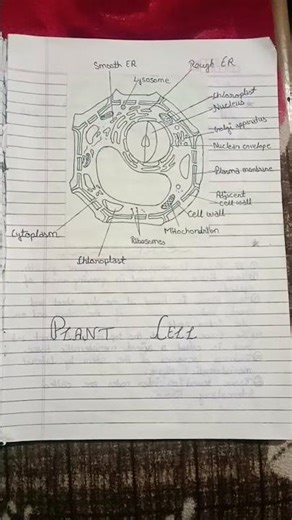 Smooth ER
Rough ER
Lysosome
Chloroplast
Nucleus
Golgi apparatus
Nuclear envelope
Plasma membrane
Adjacent
cell wall
Cell wall
Mitochondrion
Ribosomes
Cytoplasm
Chloroplast
PLANT CELL